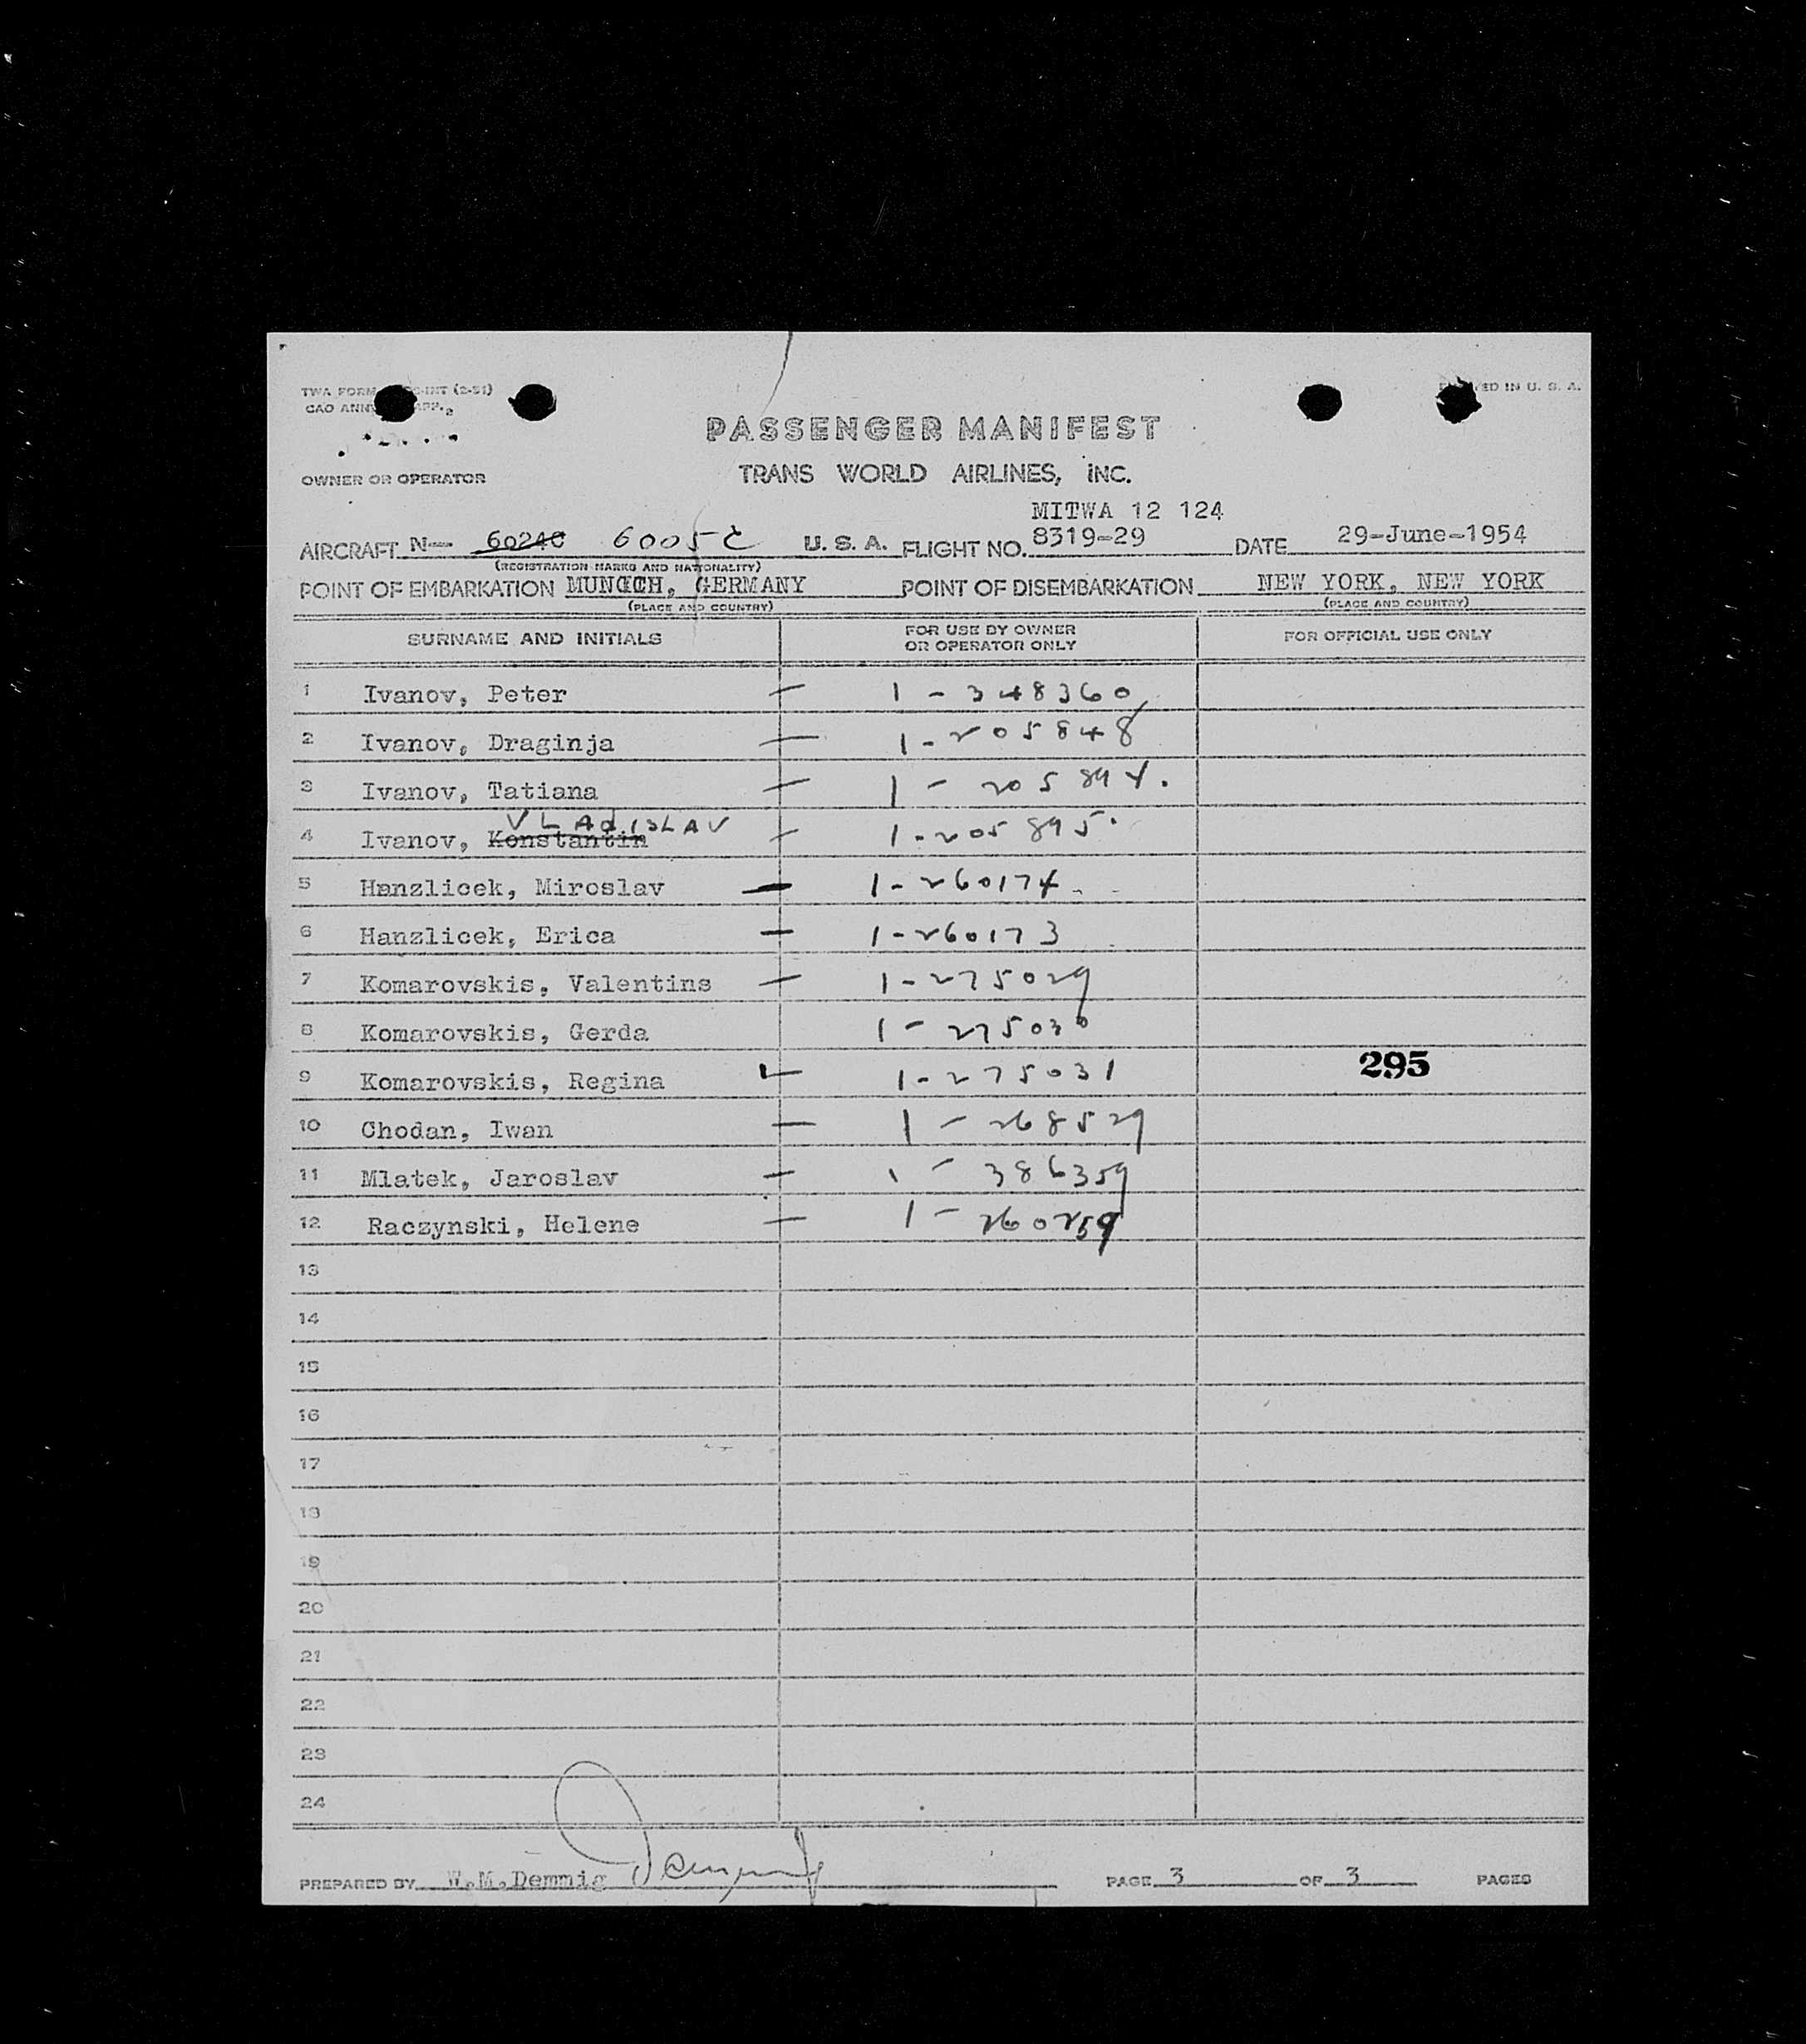 TWA FORM -INT (2-51)
CAO ANN APP. 2
ED IN U. S. A.
PASSENGER MANIFEST
OWNER OR OPERATOR
TRANS WORLD AIRLINES, INC.
MITWA 12 124
AIRCRAFT N— 60240 6005C U. S. A. FLIGHT NO. 8319-29 DATE 29-June-1954
(REGISTRATION MARKS AND NATIONALITY)
POINT OF EMBARKATION MUNICH, GERMANY POINT OF DISEMBARKATION NEW YORK, NEW YORK
(PLACE AND COUNTRY) (PLACE AND COUNTRY)
SURNAME AND INITIALS FOR USE BY OWNER OR OPERATOR ONLY FOR OFFICIAL USE ONLY
1 Ivanov, Peter — 1 - 348360
2 Ivanov, Draginja — 1 - 205848
3 Ivanov, Tatiana — 1 - 205894.
VLAdISLAV
4 Ivanov, Konstantin — 1 - 205895.
5 Hanzlicek, Miroslav — 1 - 260174
6 Hanzlicek, Erica — 1 - 260173
7 Komarovskis, Valentins — 1 - 275029
8 Komarovskis, Gerda 1 - 275030
9 Komarovskis, Regina 1 - 275031 295
10 Chodan, Iwan — 1 - 268529
11 Mlatek, Jaroslav — 1 - 386359
12 Raczynski, Helene — 1 - 260259
13
14
15
16
17
18
19
20
21
22
23
24
PREPARED BY W.M.Demnig Demnig PAGE 3 OF 3 PAGES